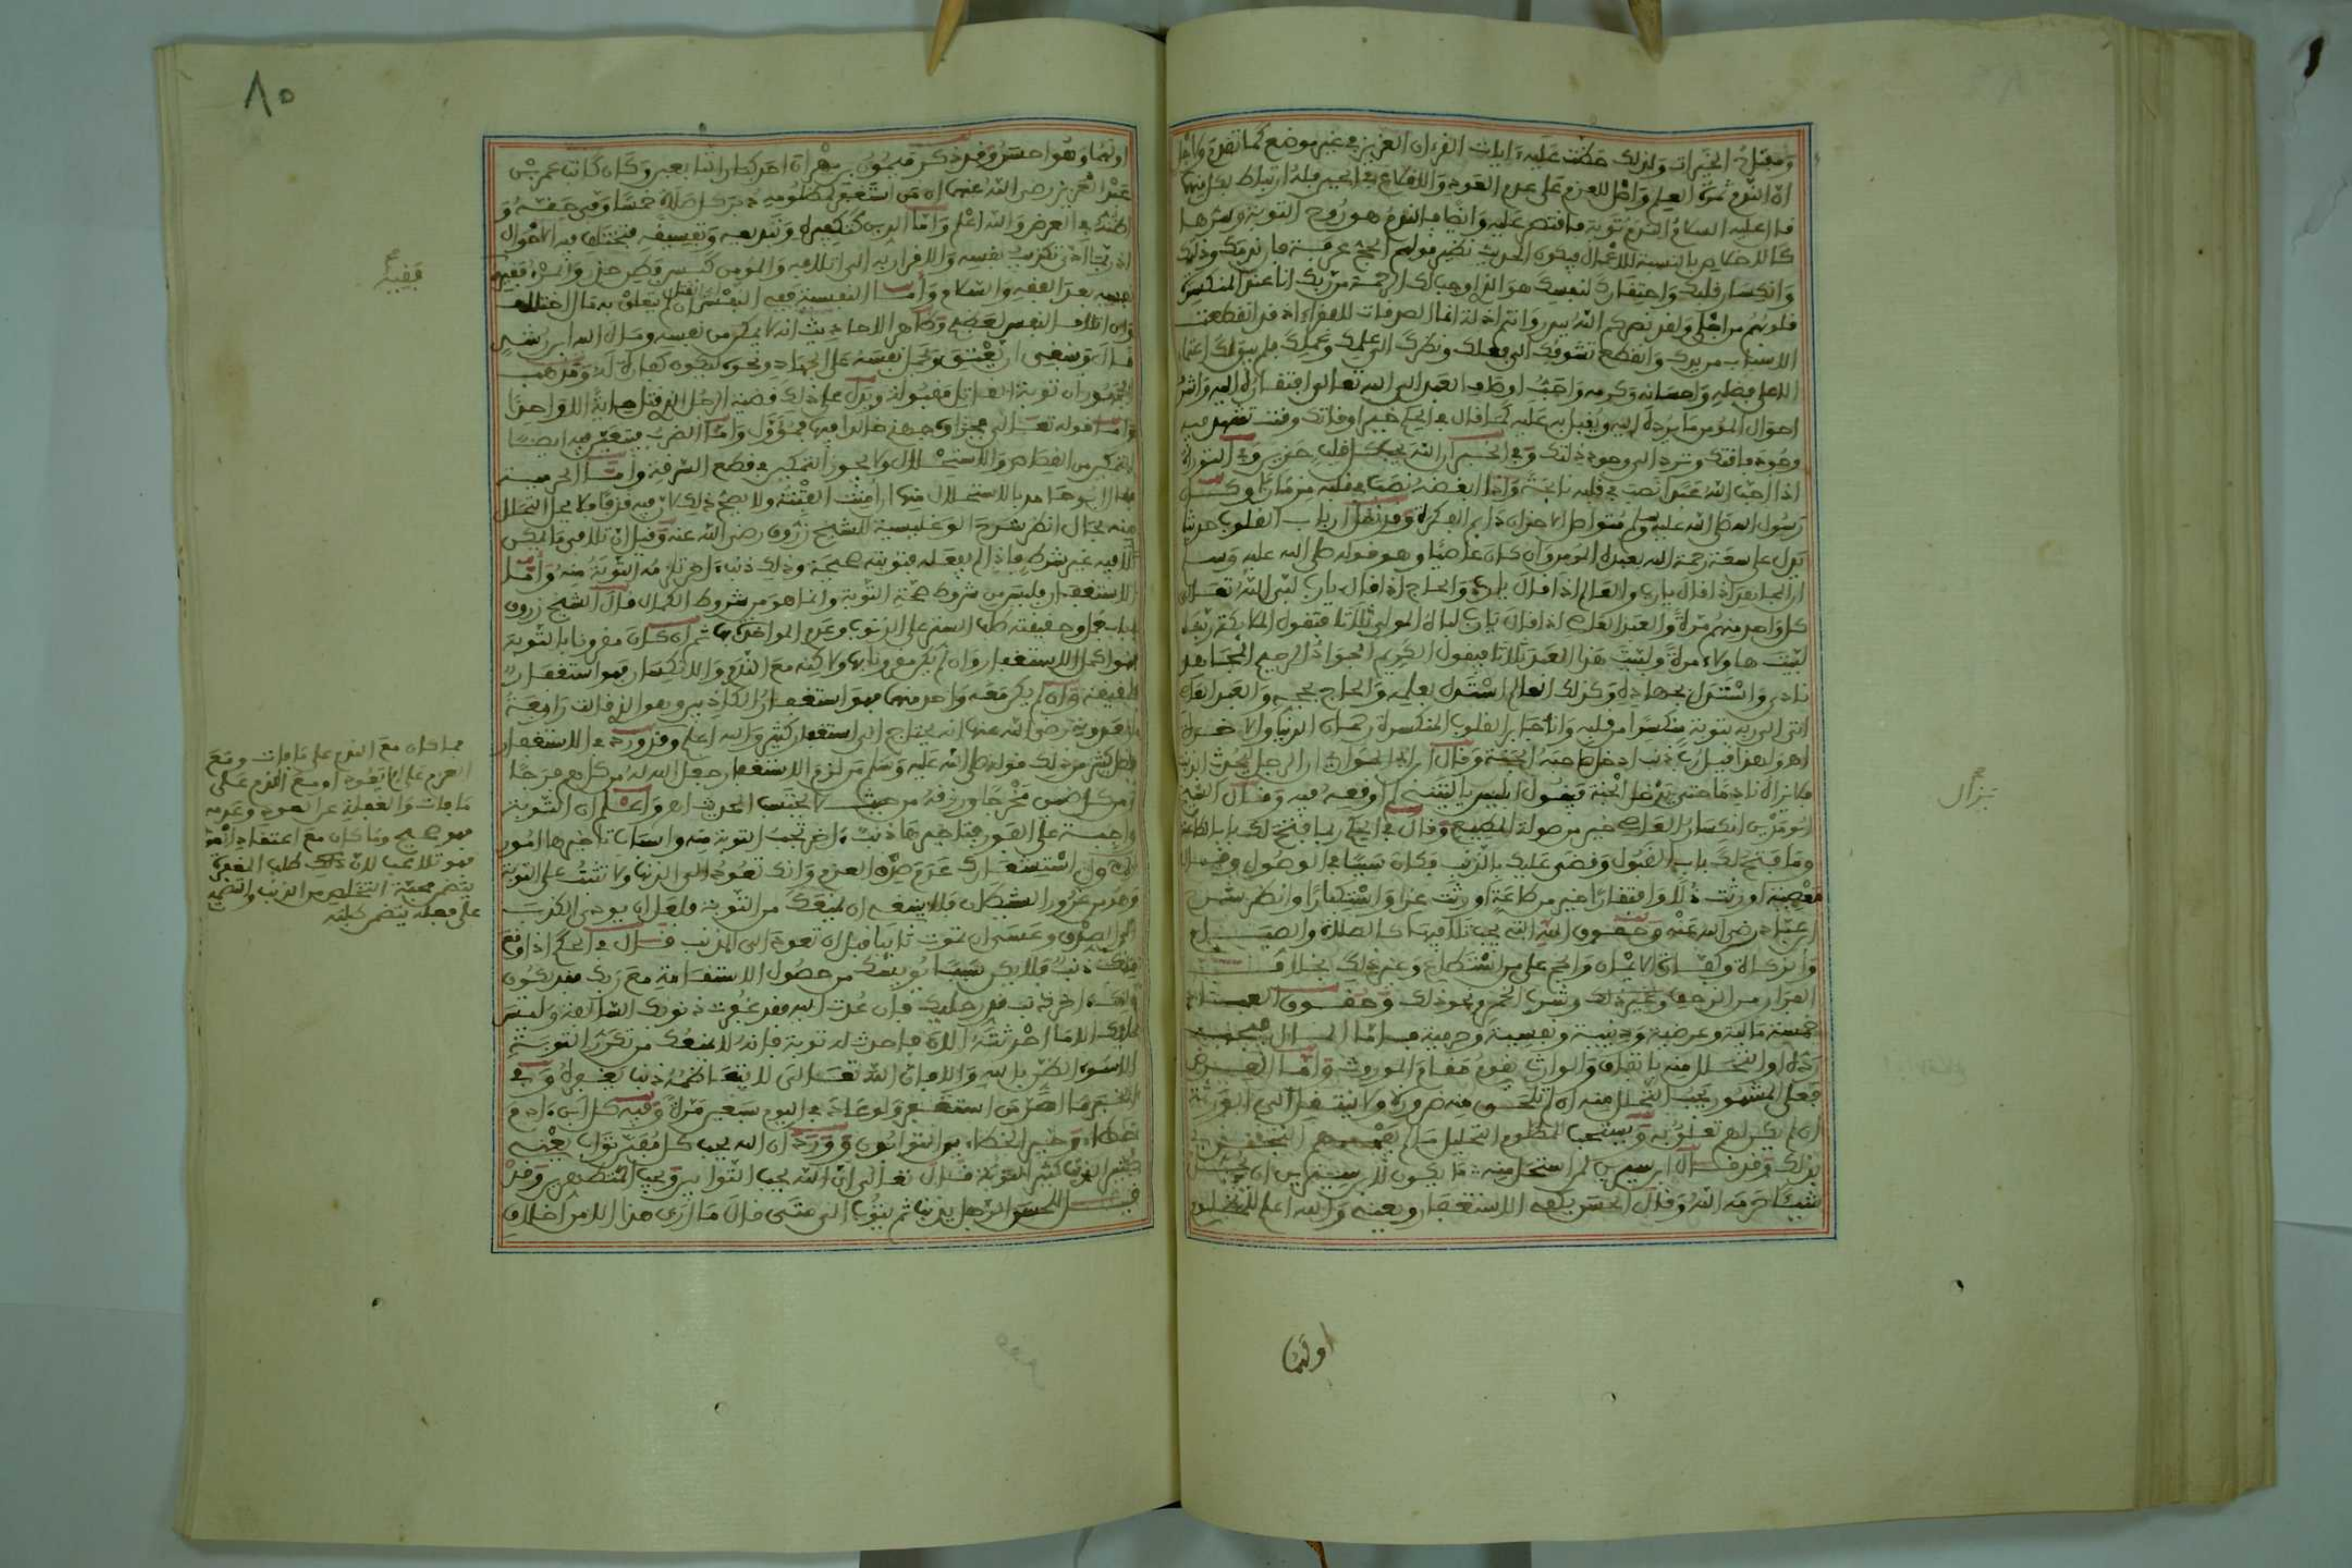 ومفتاح الخيرات ولذلك حضت عليه ءايات القرءان العزيز في غير موضع كما تقدم
ان الندم ثمرة العلم واصل للعزم على عدم العود والاقلاع
قال عليه السلام الندم توبة فاقتصر عليه وايضا فالندم هو روح التوبة وسرها
بالنسبة للاعمال فيكون الحديث نظير قولهم الحج عرفة وذلك
وانكسار قلبك واحتقارك لنفسك هو الذي اوجب لك الرحمة من ربك انا عند المنكسرة
قلوبهم من اجلي ولقد نصركم الله ببدر وانتم اذلة انما الصدقات للفقراء اذ قد انقطعت
الاسباب من يدك وانقطع تشوفك الى فعلك ونظرك الى علمك وعملك فلم يبق لك اعتماد
الا على فضله واحسانه وكرمه واحب اوصاف العبد الى الله تعالى افتقاره اليه واشرف
احوال المؤمن ما يرده اليه ويقبل به عليه كما قال في الحكم خير اوقاتك وقت تشهد فيه
وجود فاقتك وترد الى وجود ذلتك وفي الخبر ان الله يحب كل قلب حزين وفي التوراة
اذا احب الله عبدا نصب في قلبه نائحة واذا ابغضه نصب في قلبه مزمارا وكان
رسول الله صلى الله عليه وسلم متواصل الاحزان دايم الفكرة ارباب القلوب حديثا
يدل على سعة رحمة الله بعبده المومن وان كان عاصيا وهو قوله صلى الله عليه وسلم
اذا قال يا رب والعالم اذا قال يا رب والحاج اذا قال يا رب لبى الله تعالى
كل واحد منهم مرة والعبد العاصي اذا قال يا رب لباه المولى ثلاثا فتقول الملائكة ربنا
لبيت هاولاء مرة ولبيت هذا العبد ثلاثا فيقول الكريم الجواد الرحيم المجاهد
نادى واستدل بجهاده وكذلك العالم استدل بعلمه والحاج بحجه والعبد العاصي
اتى الى ربه بتوبة منكسرا من قلبه وانا جابر القلوب المنكسرة رحمان الدنيا والاخرة
اهـ ولهذا قيل رب ذنب ادخل صاحبه الجنة وقال ان الرجل يحدث الذنب
فلا يزال نادما حتى يدخل الجنة فيقول ابليس يا ليتني لم اوقعه فيه وقال الشيخ
ابو مدين انكسار العاصي خير من صولة المطيع وقال في الحكم ربما فتح لك باب الطاعة
وما فتح لك باب القبول وقضى عليك بالذنب فكان سببا في الوصول وقال
معصية اورثت ذلا وافتقارا خير من طاعة اورثت عزا واستكبارا وانظر شرح
ابن عباد رضي الله عنه وحقوق الله التي يجب تلافيها كالصلاة والصيام
والزكاة وكفارة الايمان والحج على من استطاع وغير ذلك بخلاف
الفرار من الزحف وغير ذلك وشرب الخمر ونحو ذلك وحقوق العباد
خمسة مالية وعرضية ودينية ونفسية وحرمية فاما المال فيجب
رده او التحلل منه باتفاق والوارث يقوم مقام الموروث واما العرض
فعلى المشهور يجب التحلل منه ان لم تلحق منه ضرورة ولا ينتقل الى الورثة
ان لم يكن لهم تعلق به ويستحب للمظلوم التحليل
وقد قال ابن سيرين لمن استحل منه ما يكون لابن سيرين ان يحل
شيئا حرمه الله وقال الحسن يكفيه الاستغفار ونحوه والله اعلم
اولهما
نزال
٨٥
اولهما وهو احسن وقد ذكر ميمون بن مهران احد كبار التابعين وكان كاتب عمر بن
عبد العزيز رضي الله عنهما ان من استغفر لمظلومه دبر كل صلاة خمسا وفى حقه و
اظنه في العرض والله اعلم واما الدين كتكفيره وتبديعه وتفسيقه فيختلف فيه الاحوال
اذ ربما ادى تكذيب نفسه والاقرار به الى اتلافه والمومن كيس فطن حذر والمرء فقيه
نفسه بعد الفقه والسلام واما النفسية ففيه القتل
وان اتلاف النفس وظاهر الاحاديث انه لا يمكن من نفسه ومال اليه ابن رشد
قال وينبغي ان يعتق ويحمل نفسه على الجهاد ونحوه ليكون كفارة له ومذهب
الجمهور ان توبة القاتل مقبولة ويدل على ذلك قضية الرجل الذي قتل مائة الا واحدا
واما قوله تعالى فجزاؤه جهنم خالدا فيها فمؤول واما الضرب فيتعين فيه ايضا
التمكين من القصاص والاستحلال ولا يجوز التمكين في قطع السرقة واما الحرمية
فقال ابو حامد بالاستحلال منها ان امنت الفتنة ولا يصح ذلك
بحال انظر شرح الوغليسية للشيخ زروق رضي الله عنه وقيل ان تلافى ما يمكن
تلافيه غير شرط فاذا لم يفعله فتوبته صحيحة وذلك ذنب ءاخر تلزمه التوبة منه واما
الاستغفار فليس من شروط صحة التوبة وانما هو من شروط الكمال قال الشيخ زروق
وحقيقته طلب الستر على الذنوب وعدم المواخذة بها ثم ان كان مقرونا بالتوبة
فهو اكمل الاستغفار وان لم يكن مقرونا بها ولاكنه مع الندم والانكسار فهو استغفار
حقيقة وان لم يكن معه واحد منهما فهو استغفار الكاذبين وهو الذي قالت رابعة
العدوية رضي الله عنها انه يحتاج الى استغفار كثير والله اعلم وقد ورد في الاستغفار
فضل كثير من ذلك قوله صلى الله عليه وسلم من لزم الاستغفار جعل الله له من كل هم فرجا
ومن كل ضيق مخرجا ورزقه من حيث لا يحتسب الحديث اهـ واعلم ان التوبة
واجبة على الفور فتاخيرها ذنب ءاخر تجب التوبة منه واسباب تاخيرها امور
الاول استشعارك عدم صدق العزم وانك تعود الى الذنب ولا تثبت على التوبة
وهذا من غرور الشيطان فلا ينبغي ان يمنعك من التوبة
الى الصدق وعسى ان تموت تائبا قبل ان تعود الى الذنب قال في الحكم اذا وقع
منك ذنب فلا يكن سببا يؤيسك من حصول الاستقامة مع ربك فقد يكون
ذلك ءاخر ذنب قدر عليك فان عدت اليه فقد غفرت ذنوبك السالفة وليس
عليك الا ما احدثته الان فاحدث له توبة فانه لا يمنعك من تكرر التوبة
الا سوء الظن بالله والامان الله تعالى لا يتعاظمه ذنب يغفره وفي
الخبر ما اصر من استغفر ولو عاد في اليوم سبعين مرة وفيه كل ابن ءادم
خطاء وخير الخطائين التوابون وورد ان الله يحب كل مفتن تواب يعني
كثير الذنب كثير التوبة قال تعالى ان الله يحب التوابين ويحب المتطهرين وقد
قيل للحسن الرجل يذنب ثم يتوب الى متى قال ما ارى هذا الا من اخلاق
قفيه
فما كان مع الندم على ما فات ومع
العزم على ان لا يعود او مع الندم على
ما فات والغفلة عن العود وعدمه
فهو صحيح وما كان مع اعتقاد
فهو تلاعب لان ذلك طلب المغفرة
يتضمن محبة التخلص من الذنب والتصميم
على فعله يتضمن